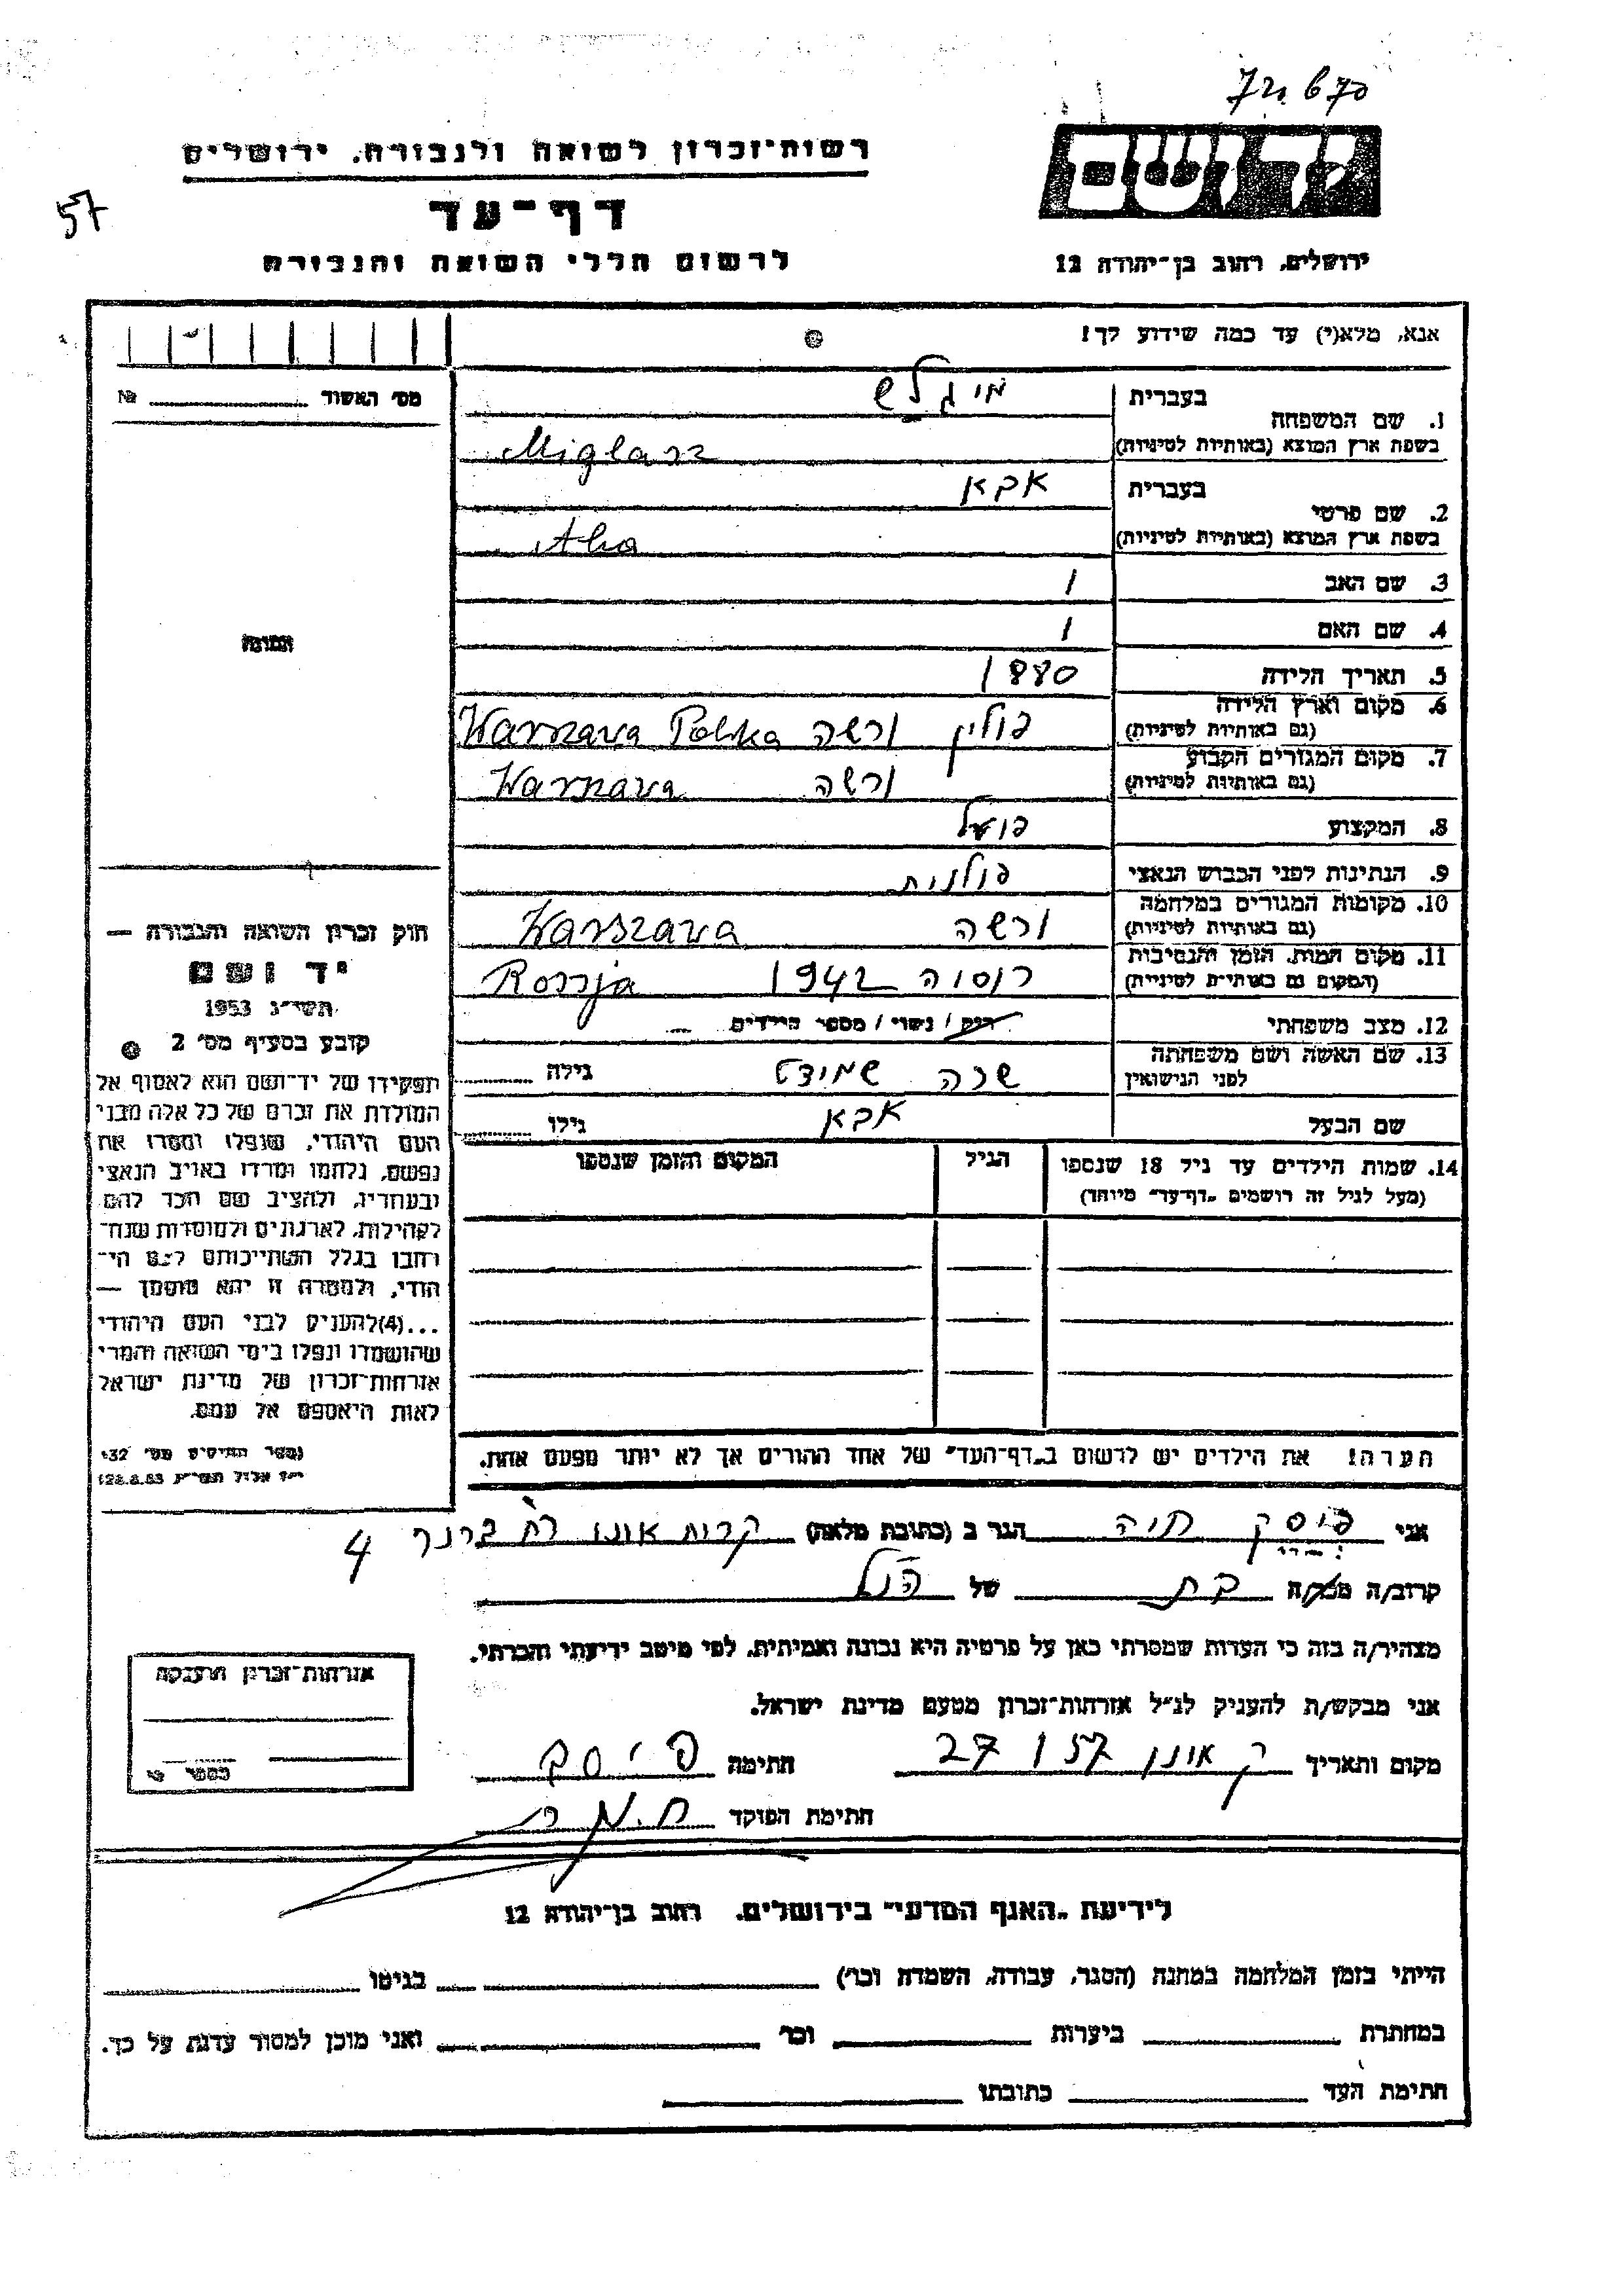 רשות־זכרון לשואה ולגבורה, ירושלים
57
דף־עד
לרשום חללי השואה והגבורה
יד ושם
ירושלים, רחוב בן־יהודה 12
אנא, מלא(י) עד כמה שידוע לך!
מס׳ האשור № 
1. שם המשפחה
בעברית מיגלש
בשפת ארץ המוצא (באותיות לטיניות) Miglasz
2. שם פרטי
בעברית אבא
בשפת ארץ המוצא (באותיות לטיניות) Aba
3. שם האב /
4. שם האם /
תמונה
5. תאריך הלידה 1880
6. מקום וארץ הלידה
(גם באותיות לטיניות) פולין ורשה Warszawa Polska
7. מקום המגורים הקבוע
(גם באותיות לטיניות) ורשה Warszawa
8. המקצוע פועל
9. הנתינות לפני הכבוש הנאצי פולנית
10. מקומות המגורים במלחמה
(גם באותיות לטיניות) ורשה Warszawa
11. מקום המות, הזמן והנסיבות
(המקום גם באותיות לטיניות) רוסיה 1942 Rosja
12. מצב משפחתי רווק / נשוי / מספר הילדים
13. שם האשה ושם משפחתה
לפני הנישואין שרה שמידט גילה
שם הבעל אבא גילו
14. שמות הילדים עד גיל 18 שנספו הגיל המקום והזמן שנספו
(מעל לגיל זה רושמים „דף־עד״ מיוחד)
חוק זכרון השואה והגבורה —
יד ושם
תשי״ג 1953
קובע בסעיף מס׳ 2
תפקידו של יד־ושם הוא לאסוף אל
המולדת את זכרם של כל אלה מבני
העם היהודי, שנפלו ומסרו את
נפשם, נלחמו ומרדו באויב הנאצי
ובעוזריו, ולהציב שם וזכר להם,
לקהילות, לארגונים ולמוסדות שנח־
רבו בגלל השתייכותם לעם הי־
הודי, ולמטרה זו יהא מוסמך —
...(4) להעניק לבני העם היהודי
שהושמדו ונפלו בימי השואה והמרי
אזרחות־זכרון של מדינת ישראל
לאות היאספם אל עמם.
הערה! את הילדים יש לרשום ב„דף־העד״ של אחד ההורים אך לא יותר מפעם אחת.
אני פיסק חיה הגר ב (כתובת מלאה) קרית אונו רח ברנר 4
קרוב/ה מכר/ה בת של הנ״ל
מצהיר/ה בזה כי העדות שמסרתי כאן על פרטיה היא נכונה ואמיתית, לפי מיטב ידיעתי והכרתי.
אני מבקש/ת להעניק לנ״ל אזרחות־זכרון מטעם מדינת ישראל.
מקום ותאריך ק אונו 27 / 57 חתימה
חתימת הפוקד
אזרחות־זכרון הוענקה
לידיעת „האגף המדעי״ בירושלים, רחוב בן־יהודה 12
הייתי בזמן המלחמה במחנה (הסגר, עבודה, השמדה וכו׳) בגיטו
במחתרת ביערות וכו׳ ואני מוכן למסור עדות על כך.
חתימת העד כתובתו